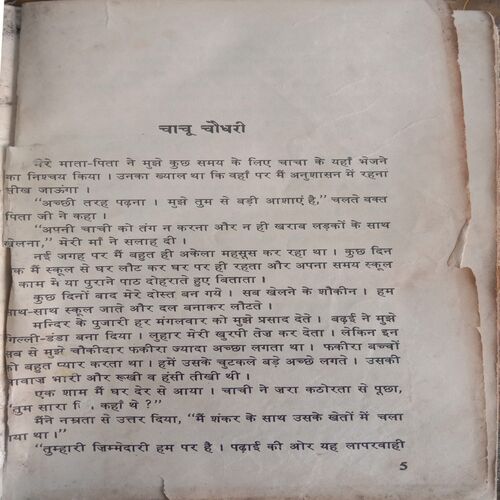 चाचू चौधरी
मेरे माता-पिता ने मुझे कुछ समय के लिए चाचा के यहाँ भेजने
का निश्चय किया । उनका ख्याल था कि वहां पर मैं अनुशासन में रहना
सीख जाऊंगा ।
"अच्छी तरह पढ़ना । मुझे तुम से बड़ी आशाएं है," चलते वक्त
पिता जी ने कहा ।
"अपनी चाची को तंग न करना और न ही खराब लड़कों के साथ
खेलना," मेरी माँ ने सलाह दी ।
नई जगह पर मैं बहुत ही अकेला महसूस कर रहा था । कुछ दिन
तक मैं स्कूल से घर लौट कर घर पर ही रहता और अपना समय स्कूल
काम में या पुराने पाठ दोहराते हुए बिताता ।
कुछ दिनों बाद मेरे दोस्त बन गये । सब खेलने के शौकीन । हम
साथ-साथ स्कूल जाते और दल बनाकर लौटते ।
मन्दिर के पुजारी हर मंगलवार को मुझे प्रसाद देते । बढ़ई ने मुझे
गिल्ली-डंडा बना दिया । लुहार मेरी खुरपी तेज़ कर देता । लेकिन इन
सब से मुझे चौकीदार फकीरा ज्यादा अच्छा लगता था । फकीरा बच्चों
को बहुत प्यार करता था । हमें उसके चुटकले बड़े अच्छे लगते । उसकी
आवाज़ भारी और रूखी व हंसी तीखी थी ।
एक शाम मैं घर देर से आया । चाची ने जरा कठोरता से पूछा,
"तुम सारा कहां थे ?"
मैंने नम्रता से उत्तर दिया, "मैं शंकर के साथ उसके खेतों में चला
गया था ।"
"तुम्हारी जिम्मेदारी हम पर है । पढ़ाई की ओर यह लापरवाही
5